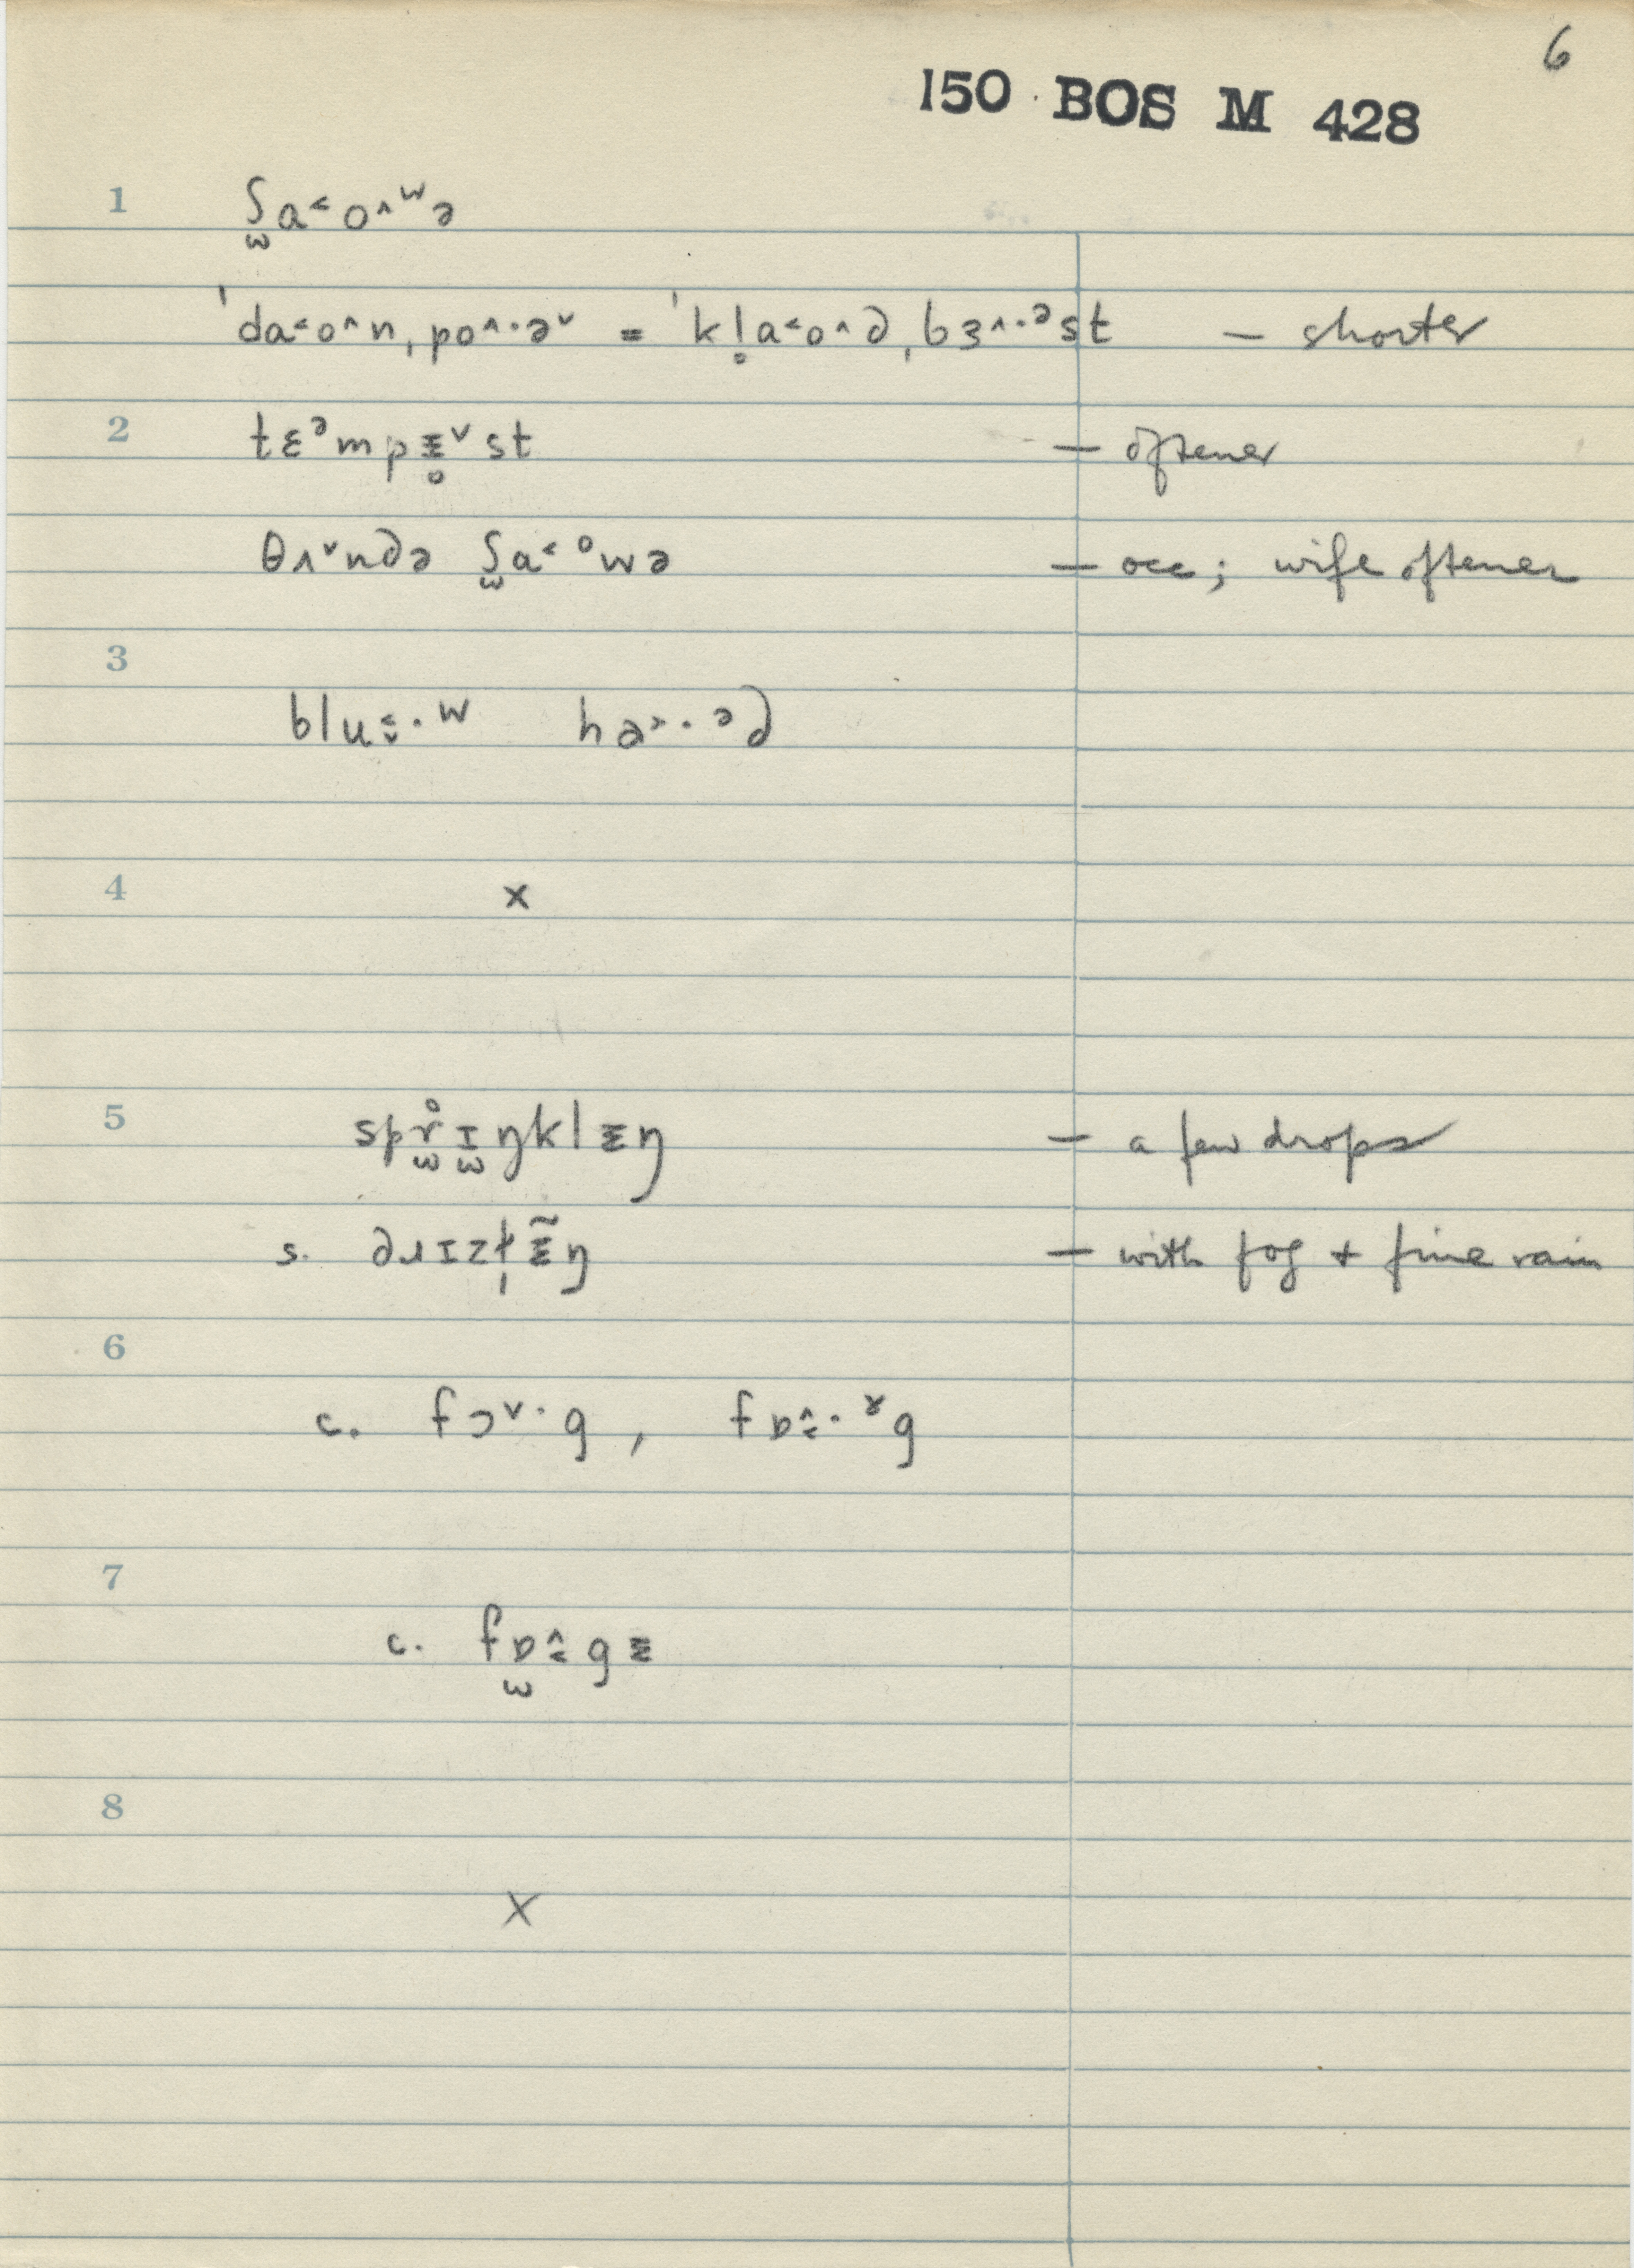 6
150 BOS M 428
1 ʃ̫a˂o˄ʷə
ˈda˂o˄nˌpo˄·ə˅ = ˈkl̥a˂o˄dˌbɜ˄·ᵊst — shorter
2 tɛᵊmpɪ̵̥˅st — oftener
θʌ˅ndə ʃ̫a˂ᵒwə — occ; wife oftener
3
blu˂˅·ʷ ha˃·ᵊd
4 x
5 spr̫̊ɪ̫ŋklɪ̵ŋ — a few drops
s. dɹɪzɫ̩ɪ̵̃ŋ — with fog + fine rain
6
c. fɔ˅·g , fɒ˄˂·ˠg
7
c. fɒ̫˄˂gɪ̵
8
X